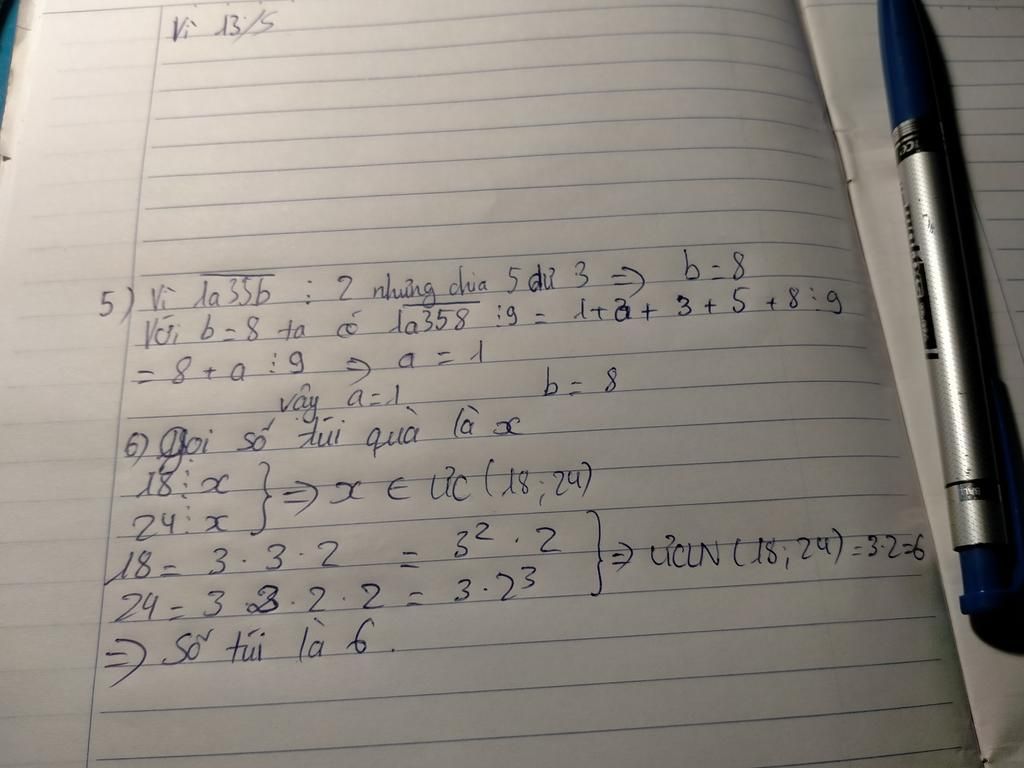 Vì 13/5
5) Vì 1a35b ⋮ 2 nhưng chia 5 dư 3 => b = 8
Với b = 8 ta có 1a358 ⋮ 9 = 1 + a + 3 + 5 + 8 ⋮ 9
= 8 + a ⋮ 9 => a = 1
vậy a = 1 b = 8
6) Gọi số túi quà là x
18 ⋮ x } => x ∈ ƯC (18 ; 24)
24 ⋮ x
18 = 3 . 3 . 2 = 3² . 2 } => ƯCLN (18 ; 24) = 3.2 = 6
24 = 3 2 . 2 . 2 = 3 . 2³
=> Số túi là 6 .